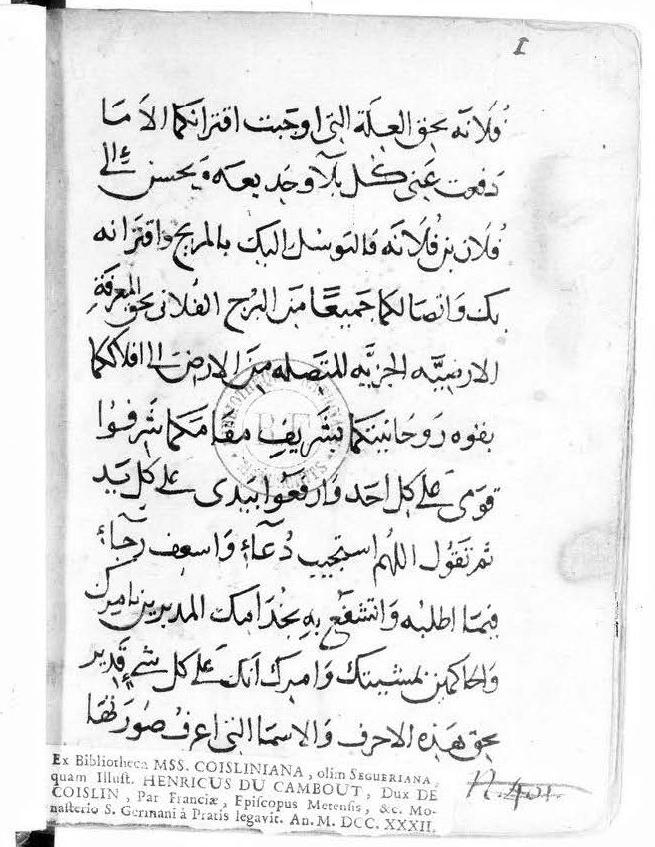 I
فلانه بحق العلة التى اوجبت اقترانكما الا ما
دفعت عنى كل بلاء وخديعه ويحسن الى
فلان بن فلانه فالتوسل اليك بالمريخ واقترانه
بك واتصالكما جميعًا من البرج الفلانى بحق المعرفة
الارضيّه الجزيّه المتصله من الارض الى افلاككما
بقوه روحانيتكما بتشريف مقامكما شرفوا
قومى على كل احد وارفعوا يدى على كل يد
ثم تقول اللهم استجيب دعاء واسعف رجاء
فيما اطلبه واتشفع به بخدامك المدبرين بامرك
والحاكمين بمشيتك وامرك انك على كل شيء قدير
بحق هذه الاحرف والاسما التى اعرف صورتها
Ex Bibliotheca MSS. COISLINIANA, olim SEGUERIANA,
quam Illust. HENRICUS DU CAMBOUT, Dux DE
COISLIN, Par Franciæ, Episcopus Metensis, &c. Mo-
nasterio S. Germani à Pratis legavit. An. M. DCC. XXXII.